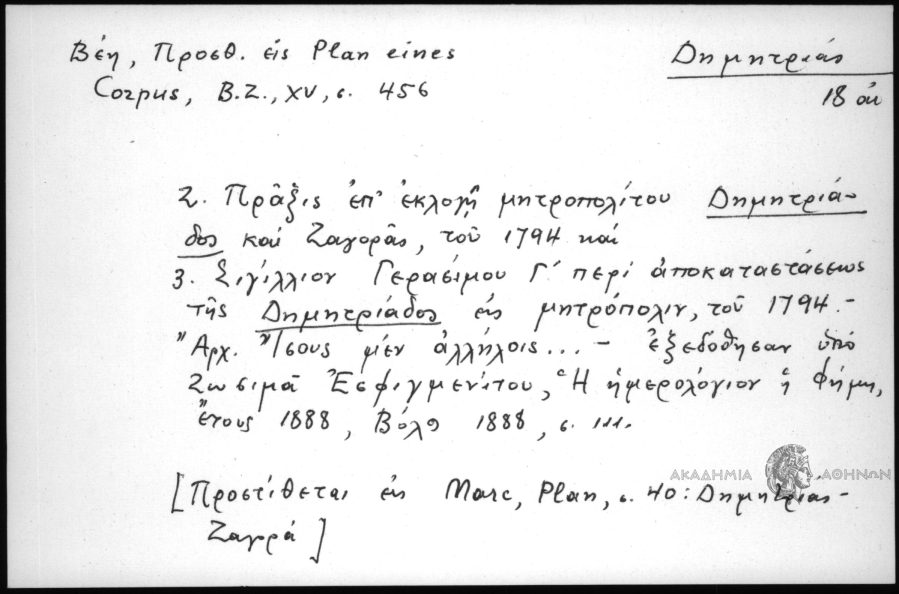 Βέη, Προσθ. εἰς Plan eines
Corpus, B.Z., XV, σ. 456
Δημητριάς
18 αι
2. Πρᾶξις ἐπ' ἐκλογῇ μητροπολίτου Δημητριά-
δος καί Ζαγορᾶς, τοῦ 1794 καί
3. Σιγίλλιον Γερασίμου Γ' περί ἀποκαταστάσεως
τῆς Δημητριάδος εἰς μητρόπολιν, τοῦ 1794.-
"Αρχ. Ἴσους μέν ἀλλήλοις... - ἐξεδόθησαν ὑπό
Ζωσιμᾶ Ἐσφιγμενίτου, Ἡ ἡμερολόγιον ἡ Φήμη,
ἔτους 1888, Βόλῳ 1888, σ. 111.
[Προστίθεται εἰς Marc, Plan, σ. 40: Δημητριάς-
Ζαγορά]
ΑΚΑΔΗΜΙΑ ΑΘΗΝΩΝ